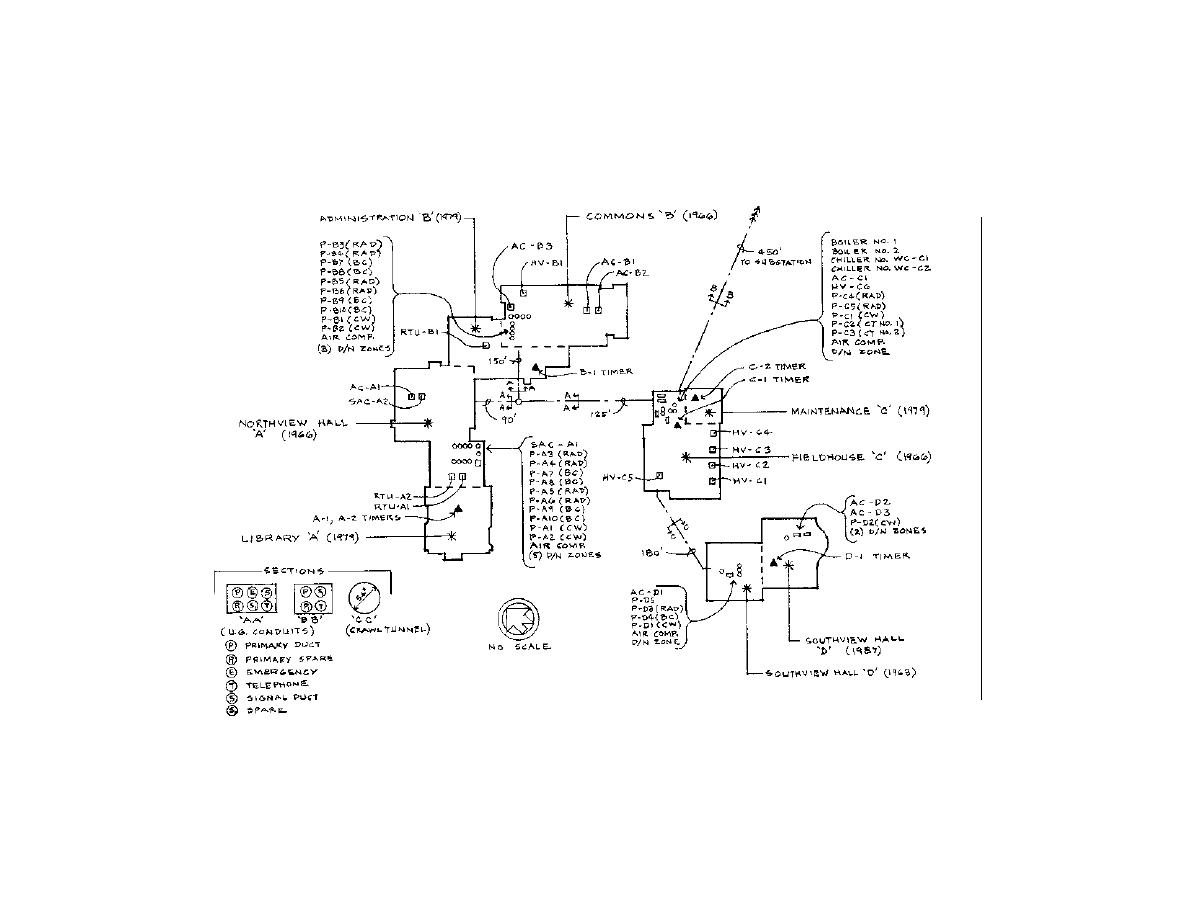 ADMINISTRATION 'B' (1979)
COMMONS 'B' (1966)
P-B3(RAD)
P-B4(RAD)
P-B7 (BC)
P-B8(BC)
P-B5(RAD)
P-B6(RAD)
P-B9(BC)
P-B10(BC)
P-B1(CW)
P-B2(CW)
AIR COMP.
(3) D/N ZONES
AC-B3
HV-B1
AC-B1
AC-B2
RTU-B1
150'
B-1 TIMER
450'
TO SUBSTATION
B
B
BOILER NO. 1
BOILER NO. 2
CHILLER NO. WC-C1
CHILLER NO. WC-C2
AC-C1
HV-C6
P-C4(RAD)
P-C5(RAD)
P-C1(CW)
P-C2(CT NO. 1)
P-C3(CT NO. 2)
AIR COMP.
D/N ZONE
C-2 TIMER
C-1 TIMER
AC-A1
SAC-A2
A
A
A
A
A
A
90'
125'
MAINTENANCE 'C' (1979)
NORTHVIEW HALL
'A' (1966)
HV-C4
HV-C3
HV-C2
HV-C1
HV-C5
FIELDHOUSE 'C' (1966)
SAC-A1
P-A3(RAD)
P-A4(RAD)
P-A7(BC)
P-A8(BC)
P-A5(RAD)
P-A6(RAD)
P-A9(BC)
P-A10(BC)
P-A1(CW)
P-A2(CW)
AIR COMP.
(5) D/N ZONES
RTU-A2
RTU-A1
A-1, A-2 TIMERS
LIBRARY 'A' (1979)
C
C
180'
AC-D2
AC-D3
P-D2(CW)
(2) D/N ZONES
D-1 TIMER
AC-D1
P-D5
P-D3(RAD)
P-D4(BC)
P-D1(CW)
AIR COMP.
D/N ZONE
SOUTHVIEW HALL
'D' (1987)
SOUTHVIEW HALL 'D' (1968)
SECTIONS
P E S
R S T
P S
R T
'AA' 'BB' 'CC'
(U.G. CONDUITS) (CRAWL TUNNEL)
P PRIMARY DUCT
R PRIMARY SPARE
E EMERGENCY
T TELEPHONE
S SIGNAL DUCT
S SPARE
NO SCALE